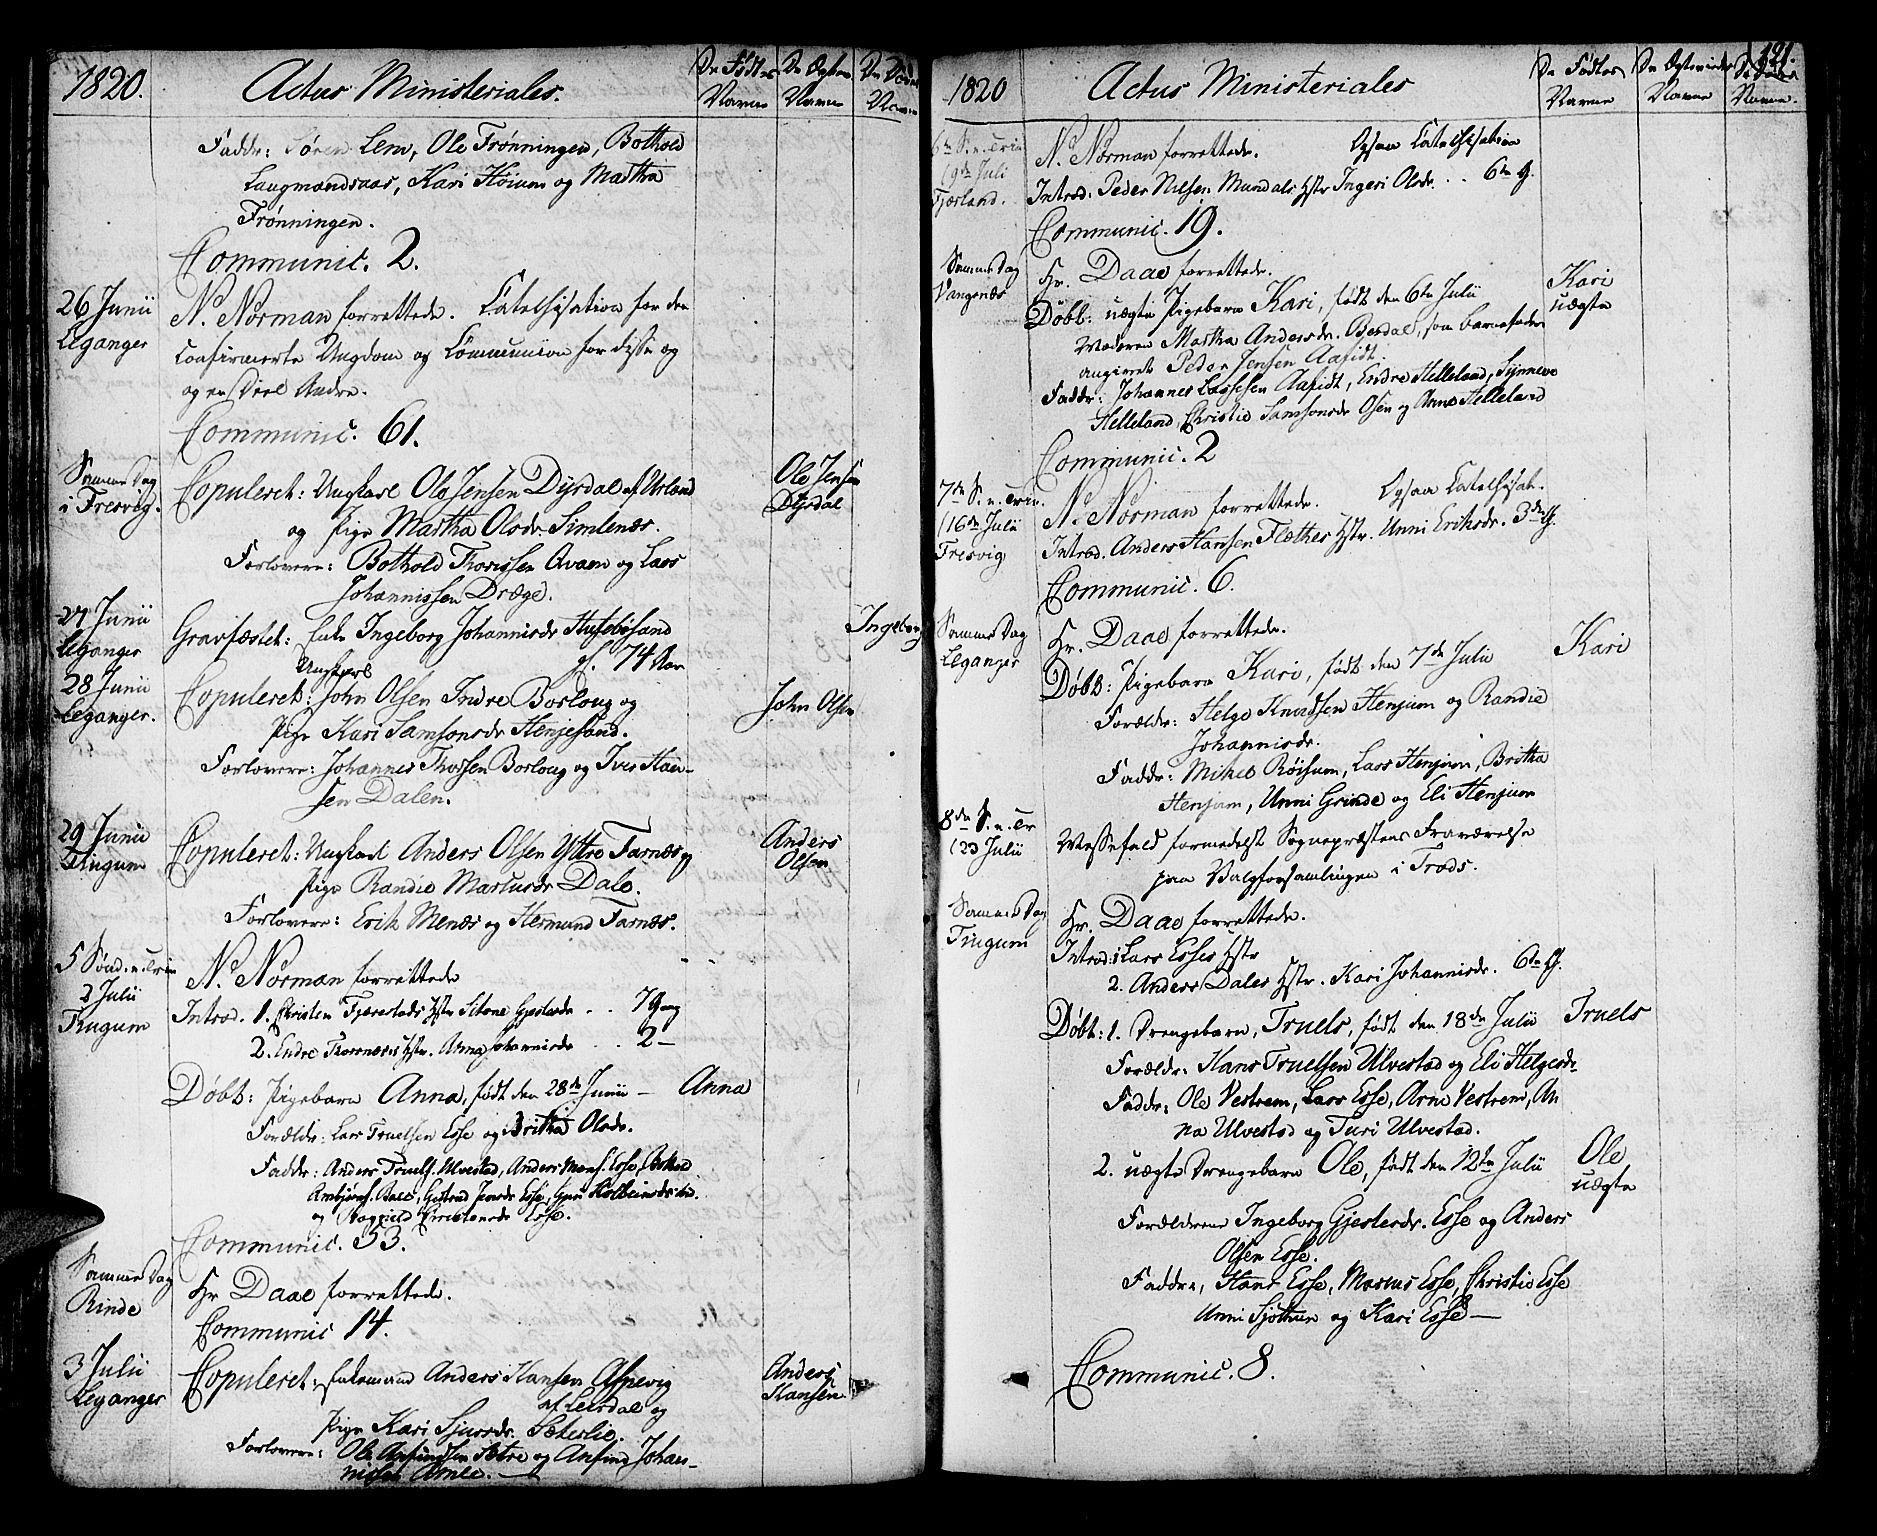 1820.
Actus Ministeriales.
De Fødtes Navne
De Ægtev. Navne
De Dødes Navne
Faddr: Søren Lem, Ole Frønningen, Bothold
Laugmandsaas, Kari Høium og Martha
Frønningen.
Communic. 2.
26 Junii
Leganger
N. Norman forrettede. Catechisation for den
confirmerte Ungdom og Communion for disse og
og en Deel Andre.
Communic. 61.
Samme Dag
i Fresvig.
Copuleret: Ungkarl Ole Jensen Dyrdal af Urland
og Pige Martha Olsdr. Simlenæs.
Forlovere: Bothold Thorissen Qvam og Lars
Johannissen Dræge.
Ole Jensen
Dyrdal
27 Junii
Leganger
Gravfæstet: Enke Ingeborg Johannisdr Husebøsand
gl. 74 Aar
Ingeborg
28 Junii
Leganger.
Ungkarl
Copuleret: John Olsen Indre Borloug og
Pige Kari Samsonsdr Henjesand.
Forlovere: Johannes Thorsen Borloug og Iver Han-
sen Dalen.
John Olsen
29 Junii
Tingum
Copuleret: Ungkarl Anders Olsen Yttre Farnæs og
Pige Randie Marcusdr Dale.
Forlovere: Erik Menæs og Hermund Farnæs.
Anders
Olsen
5 Sønd. n. Trin
2 Julii
Tingum
N. Norman forrettede
Introd. 1. Christen Fjærestads Hstr Sitone Gjestsdr .. 7 Gang
2. Endre Thornæs Hstr. Anna Johannisdr .. 2 —
Døbt: Pigebarn Anna, født den 28de Junii —
Anna
Forældr: Lars Truelsen Esse og Britha Olsdr.
Faddr: Anders Truels. Ulvestad, Anders Mons. Esse,
og Christensdr Esse.
Communic. 53.
Samme Dag
Rinde
Hr Daae forrettede.
Communic 14.
3 Julii
Leganger
Copuleret: Enkemand Anders Hansen Aspevig
af Leirdal og
Pige Kari Sjursdr. Sæterlie.
Forlovere: Ole Anfindsen Sætre og Anfind Johan-
nissen Amle. —
Anders
Hansen
1820
Actus Ministeriales
De Fødtes Navne
De Ægteviedes Navne
De Dødes Navne.
121.
6te S. n. Trin
(9de Juli
Fjærland.
N. Norman forrettede. Ogsaa Catechisation
Introd: Peder Nilsen Mundals Hstr Ingeri Olsdr. .. 6te G.
Communic. 19.
Samme Dag
Vangsnæs
Hr. Daae forrettede.
Døbt: uægte Pigebarn Kari, født den 6te Julii
Moderen Martha Andersdr. Berdal, som Barnefader
angivet Peder Jensen Aafedt.
Faddr: Johannes Lassesen Aafedt, Endre Helleland, Synneve
Helleland, Christie Samsonsdr Osen og Arne Helleland
Kari
uægte
Communic. 2
7de S. n. Trin.
(16de Julii
Fresvig
N. Norman forrettede. Ogsaa Catechisat.
Introd. Anders Hansen Flæthes Hstr. Unni Eriksdr. 3de G.
Communic. 6.
Samme Dag
Leganger
Hr. Daae forrettede.
Døbt: Pigebarn Kari, født den 7de Julii
Forældr: Helge Knudsen Henjum og Randie
Johannisdr.
Faddr: Mikel Røisum, Lars Henjum, Britha
Henjum, Unni Grinde og Eli Henjum
Kari
8de S. n. Tr
(23 Julii
Messefald formedelst Sognepræstens Fraværelse
paa Valgforsamlingen i Fræds.
Samme Dag
Tingum
Hr. Daae forrettede.
Introd: 1 Lars Esses Hstr
2. Anders Dales Hstr. Kari Johannisdr. 6te G.
Døbt: 1. Drengebarn, Truels, født den 18de Julii
Truels
Forældr: Hans Truelsen Ulvestad og Eli Helgesdr.
Faddr: Ole Vestrem, Lars Esse, Arne Vestrem, An
na Ulvestad og Turi Ulvestad.
2. uægte Drengebarn Ole, født den 12te Julii
Ole
uægte
Forældrene Ingeborg Gjestsdr. Esse og Anders
Olsen Esse.
Faddr, Hans Esse, Marcus Esse, Christie Esse
Unni Sjøthun og Kari Esse —
Communic. 8.